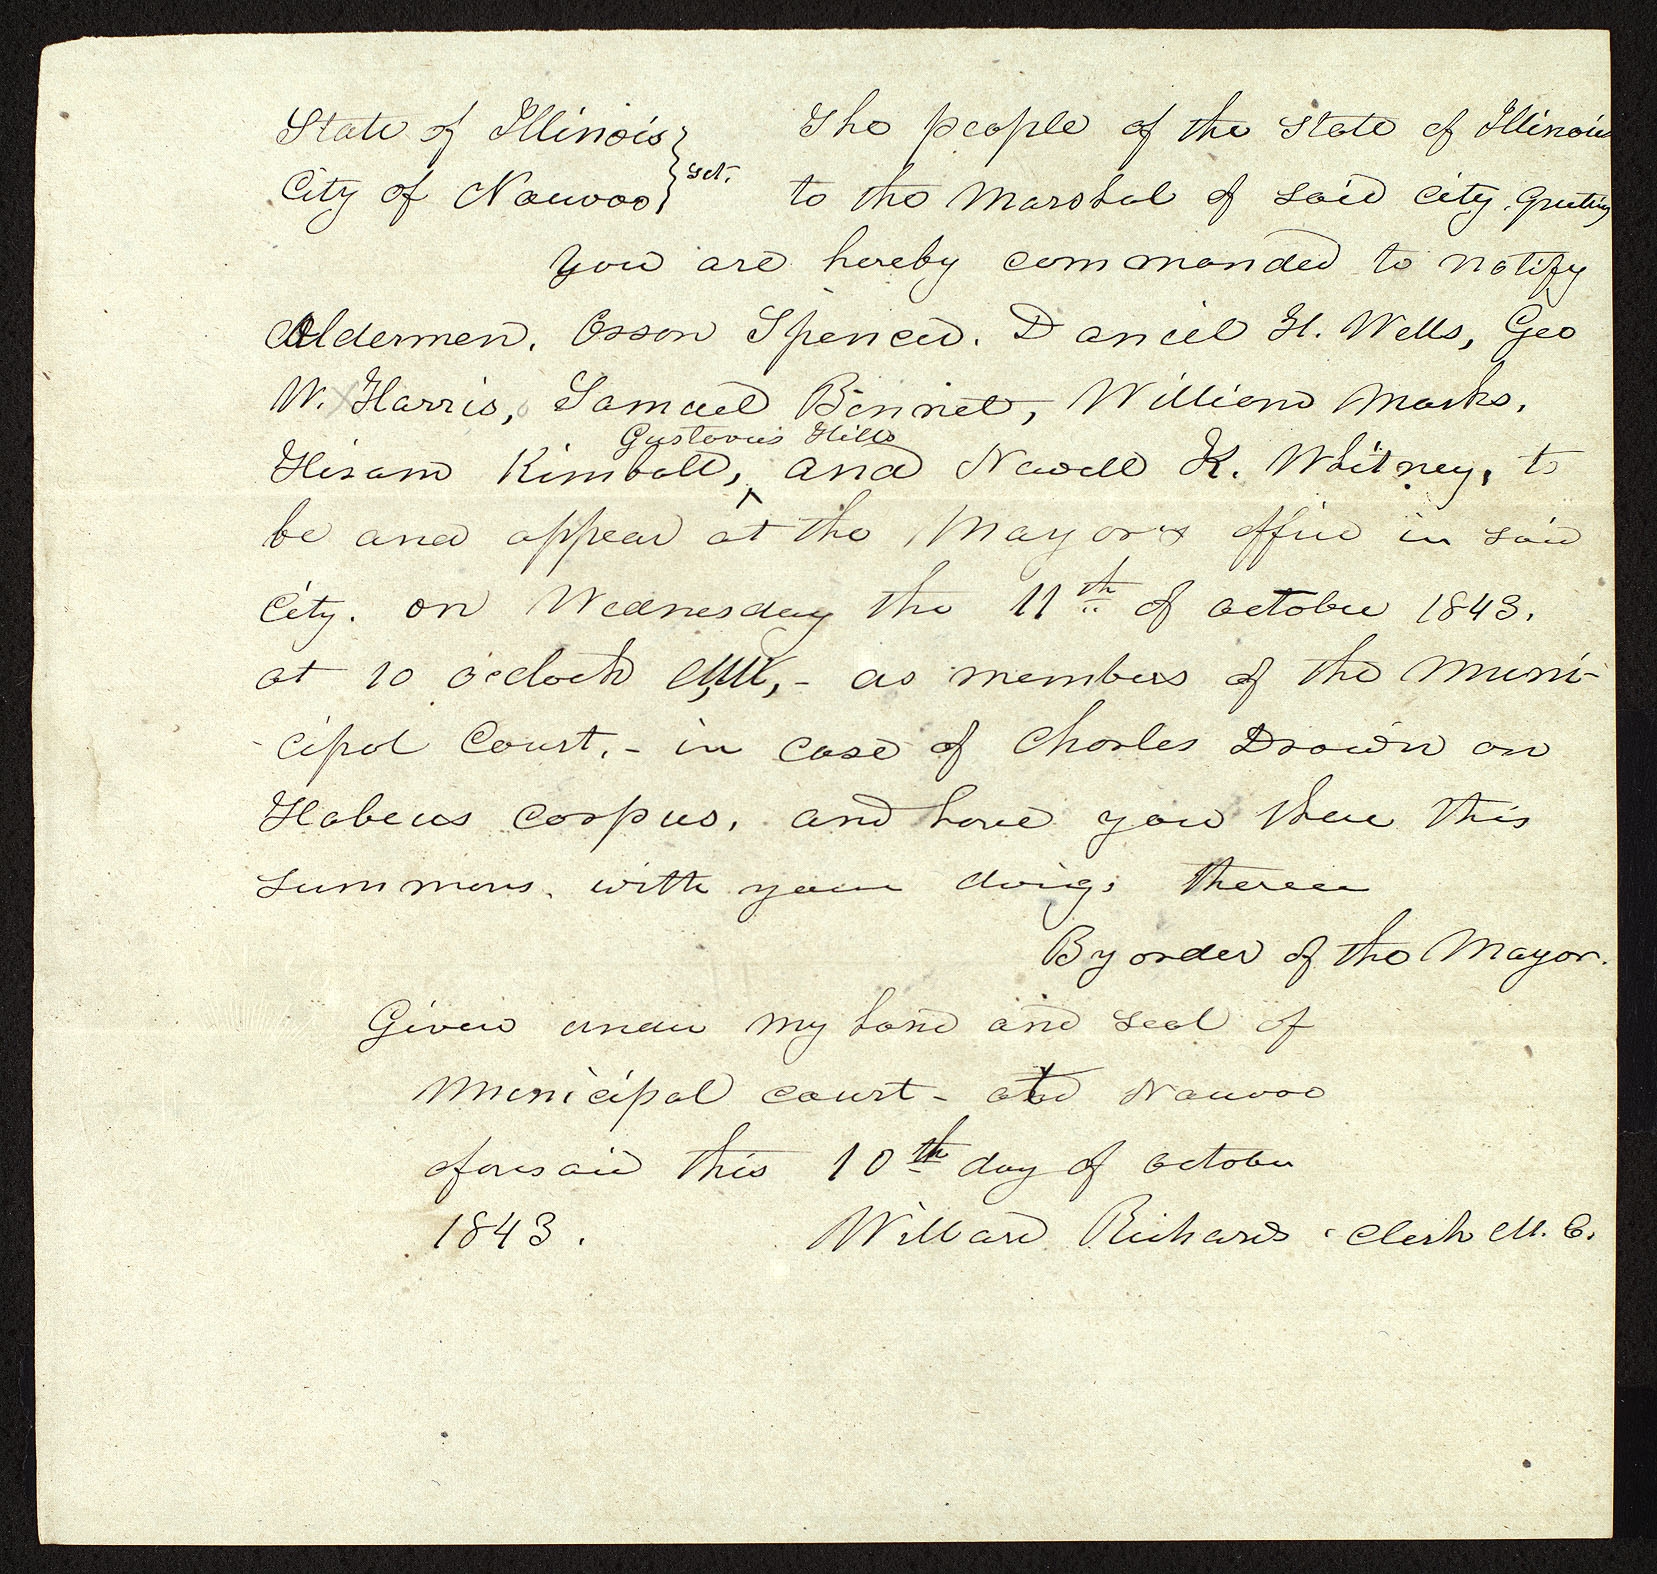 State of Illinois } The people of the State of Illinois
City of Nauvoo } sct. to the Marshal of said city. Greeting
you are hereby commanded to notify
Aldermen. Orson Spencer. Daniel H. Wells, Geo
W. Harris, Samuel Bennet, William Marks,
Gustavus Hills
Hiram Kimball, ^ and Newell K. Whitney, to
be and appear at the Mayor's office in said
City. on Wednesday the 11th of october 1843.
at 10 o'clock AM,- as members of the Muni-
-cipal Court,- in case of Charles Drown on
Habeus corpus, and have you there this
summons. with your doings thereon
By order of the Mayor.
Given under my hand and seal of
Municipal court- at Nauvoo
aforesaid this 10th day of october
1843. Willard Richards. Clerk M. C.